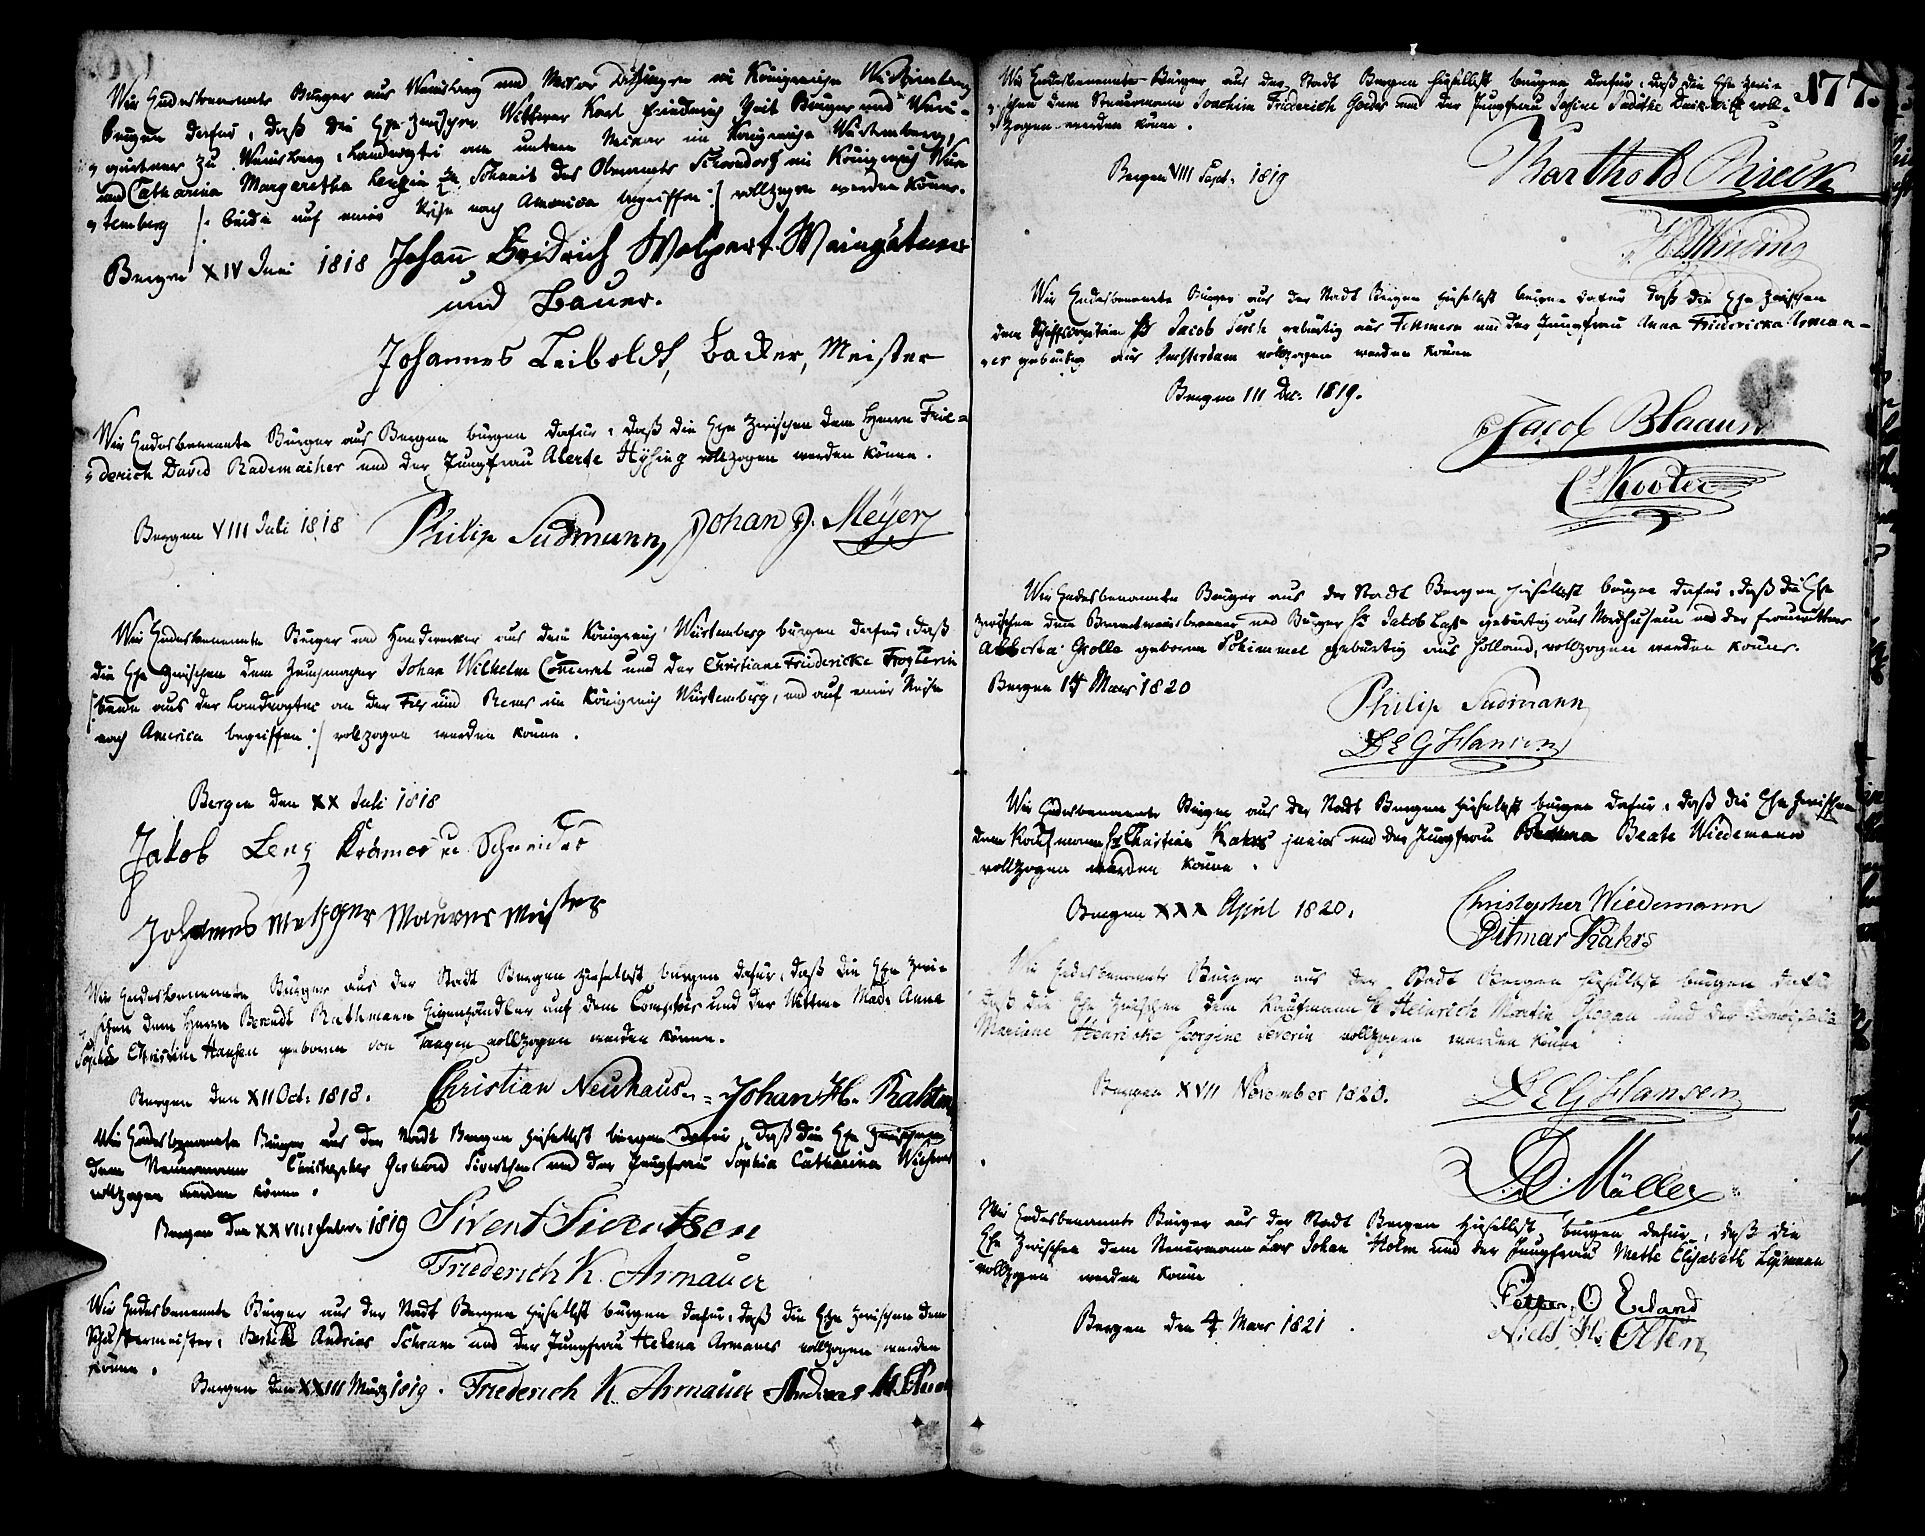 Wir Endesbenannte Bürger aus Weinsberg und
bürgen dafür, daß die Ehe zwischen Wittwer Karl Friederich Veit Bürger und Wein-
gärtner zu Weinsberg, Landvogtei am untern Nekar im Königreich Würtemberg,
und Catharina Margaretha Lenzin des Oberamts Schorndorf im Königreich Würt-
temberg /: beide auf einer Reise nach America begriffen :/ vollzogen werden könne.
Bergen XIV Juni 1818 Johann Fridrich Wolpert Waingätner
und Bauer.
Johannes Leiboldt, Backer, Meister
Wir Endesbenannte Bürger aus Bergen bürgen dafür, daß die Ehe zwischen dem Herrn Frie-
derich David Rademacher und der Jungfrau Alerte Hysing vollzogen werden könne.
Bergen VIII Juli 1818 Philip Sudmann, Johan J. Meyer
Wir Endesbenannte Bürger und Handwerker aus dem Königreich Würtemberg bürgen dafür, daß
die Ehe zwischen dem Johan Wilhelm und der Christiane Friedericke
/: beide aus der Landvogtei an der Fils und Rems im Königreich Würtemberg, und auf einer Reise
nach America begriffen :/ vollzogen werden könne.
Bergen den XX Juli 1818
Jakob Lenz Krämer u Schneider
Johannes Metzger Maurer Meister
Wir Endesbenannte Bürger aus der Stadt Bergen hieselbst bürgen dafür, daß die Ehe zwi-
schen dem Herrn Berendt Rathmann Eigenhändler auf dem Comptoir und der Wittwe Mad. Anna
Sophia Christine Hansen geboren von Tangen vollzogen werden könne.
Bergen den XII Oct: 1818. Christian Neuhaus. Johan H.
Wir Endesbenannte Bürger aus der Stadt Bergen hieselbst bürgen dafür, daß die Ehe zwischen
dem Steuermann Christopher Gerhard Sivertsen und der Jungfrau Sophia Catharina
vollzogen werden könne.
Bergen den XXVIII Febr. 1819 Sivert Sivertsen
Friederich K. Armauer
Wir Endesbenannte Bürger aus der Stadt Bergen hieselbst bürgen dafür, daß die Ehe zwischen dem
Schustermeister, Andreas Schram und der Jungfrau Helena Armauer vollzogen werden
könne.
Bergen den XXIII März 1819. Friederich K. Armauer Andreas
177.
Wir Endesbenannte Bürger aus der Stadt Bergen hieselbst bürgen dafür, daß die Ehe zwi-
schen dem Steuermann Joachim Friderich und der Jungfrau voll-
zogen werden könne.
Bergen VIII Sept. 1819
Barthold Rieck
Wir Endesbenannte Bürger aus der Stadt Bergen hieselbst bürgen dafür daß die Ehe zwischen
dem Schiffscapitain Hr Jacob gebürtig aus Fehmern und der Jungfrau Anna Fridericka
gebürtig aus Amsterdam vollzogen werden könne
Bergen III Dec. 1819.
Jacob Blaauw
Wir Endesbenannte Bürger aus der Stadt Bergen hieselbst bürgen dafür, daß die Ehe
zwischen dem Branntweinsbrenner und Bürger Hr Jakob gebürtig aus Nordhusum und der Frau Wittwe
Alberta Grolle geboren Schimmel gebürtig aus Holland, vollzogen werden könne.
Bergen 14 Mars 1820
Philip Sudmann
D E G Hansen
Wir Endesbenannte Bürger aus der Stadt Bergen hieselbst bürgen dafür, daß die Ehe zwischen
dem Kaufmann Hr Christian Kahrs junior und der Jungfrau Beate Wiedemann
vollzogen werden könne.
Bergen XXX April 1820.
Christopher Wiedemann
Ditmar Kahrs
Wir Endesbenannte Bürger aus der Stadt Bergen hieselbst bürgen dafür
daß die Ehe zwischen dem Kaufmann Hr Heinrich Martin Glogau und der Demoiselle
Mariane Henricke Georgine Severin vollzogen werden könne
Bergen XVII November 1820.
D E G Hansen
D. Möller
Wir Endesbenannte Bürger aus der Stadt Bergen hieselbst bürgen dafür, daß die
Ehe zwischen dem Steuermann Lar Johan Holm und der Jungfrau Methe Elisabeth
vollzogen werden könne
Bergen den 4 Mars 1821.
Petter O
Niels H. Olsen